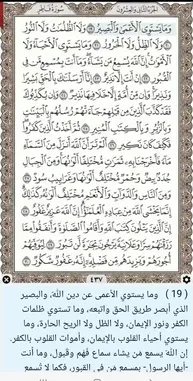 الجزء الثاني والعشرون سورة فاطر
وَمَا يَسْتَوِى ٱلْأَعْمَىٰ وَٱلْبَصِيرُ ١٩ وَلَا ٱلظُّلُمَٰتُ وَلَا ٱلنُّورُ
٢٠ وَلَا ٱلظِّلُّ وَلَا ٱلْحَرُورُ ٢١ وَمَا يَسْتَوِى ٱلْأَحْيَآءُ وَلَا
ٱلْأَمْوَٰتُ إِنَّ ٱللَّهَ يُسْمِعُ مَن يَشَآءُ وَمَآ أَنتَ بِمُسْمِعٍ مَّن فِى
ٱلْقُبُورِ ٢٢ إِنْ أَنتَ إِلَّا نَذِيرٌ ٢٣ إِنَّآ أَرْسَلْنَٰكَ بِٱلْحَقِّ بَشِيرًا
وَنَذِيرًا وَإِن مِّنْ أُمَّةٍ إِلَّا خَلَا فِيهَا نَذِيرٌ ٢٤ وَإِن يُكَذِّبُوكَ
فَقَدْ كَذَّبَ ٱلَّذِينَ مِن قَبْلِهِمْ جَآءَتْهُمْ رُسُلُهُم بِٱلْبَيِّنَٰتِ
وَبِٱلزُّبُرِ وَبِٱلْكِتَٰبِ ٱلْمُنِيرِ ٢٥ ثُمَّ أَخَذْتُ ٱلَّذِينَ كَفَرُوا۟
فَكَيْفَ كَانَ نَكِيرِ ٢٦ أَلَمْ تَرَ أَنَّ ٱللَّهَ أَنزَلَ مِنَ ٱلسَّمَآءِ
مَآءً فَأَخْرَجْنَا بِهِۦ ثَمَرَٰتٍ مُّخْتَلِفًا أَلْوَٰنُهَا وَمِنَ ٱلْجِبَالِ
جُدَدٌۢ بِيضٌ وَحُمْرٌ مُّخْتَلِفٌ أَلْوَٰنُهَا وَغَرَابِيبُ سُودٌ ٢٧
وَمِنَ ٱلنَّاسِ وَٱلدَّوَآبِّ وَٱلْأَنْعَٰمِ مُخْتَلِفٌ أَلْوَٰنُهُۥ كَذَٰلِكَ
إِنَّمَا يَخْشَى ٱللَّهَ مِنْ عِبَادِهِ ٱلْعُلَمَٰٓؤُا۟ إِنَّ ٱللَّهَ عَزِيزٌ غَفُورٌ ٢٨
إِنَّ ٱلَّذِينَ يَتْلُونَ كِتَٰبَ ٱللَّهِ وَأَقَامُوا۟ ٱلصَّلَوٰةَ وَأَنفَقُوا۟ مِمَّا
رَزَقْنَٰهُمْ سِرًّا وَعَلَانِيَةً يَرْجُونَ تِجَٰرَةً لَّن تَبُورَ ٢٩ لِيُوَفِّيَهُمْ
أُجُورَهُمْ وَيَزِيدَهُم مِّن فَضْلِهِۦٓ إِنَّهُۥ غَفُورٌ شَكُورٌ ٣٠
٤٣٧
( 19 ) وما يستوي الأعمى عن دين الله، والبصير
الذي أبصر طريق الحق واتبعه، وما تستوي ظلمات
الكفر ونور الإيمان، ولا الظل ولا الريح الحارة، وما
يستوي أحياء القلوب بالإيمان، وأموات القلوب بالكفر.
إن الله يسمع من يشاء سماع فهم وقبول، وما أنت
-أيها الرسول- بمسمع من في القبور، فكما لا تسمع